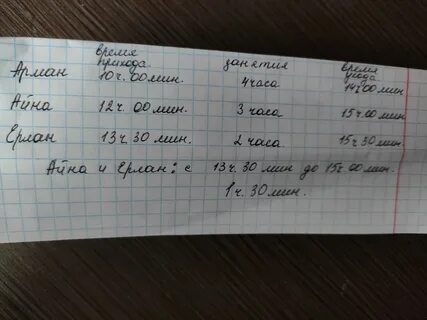 время прихода занятия время ухода
Арман 10 ч. 00 мин. 4 часа 14 ч 00 мин
Айна 12 ч. 00 мин. 3 часа 15 ч 00 мин
Ерлан 13 ч 30 мин 2 часа 15 ч 30 мин
Айна и Ерлан: с 13 ч. 30 мин до 15 ч 00 мин.
1 ч. 30 мин.